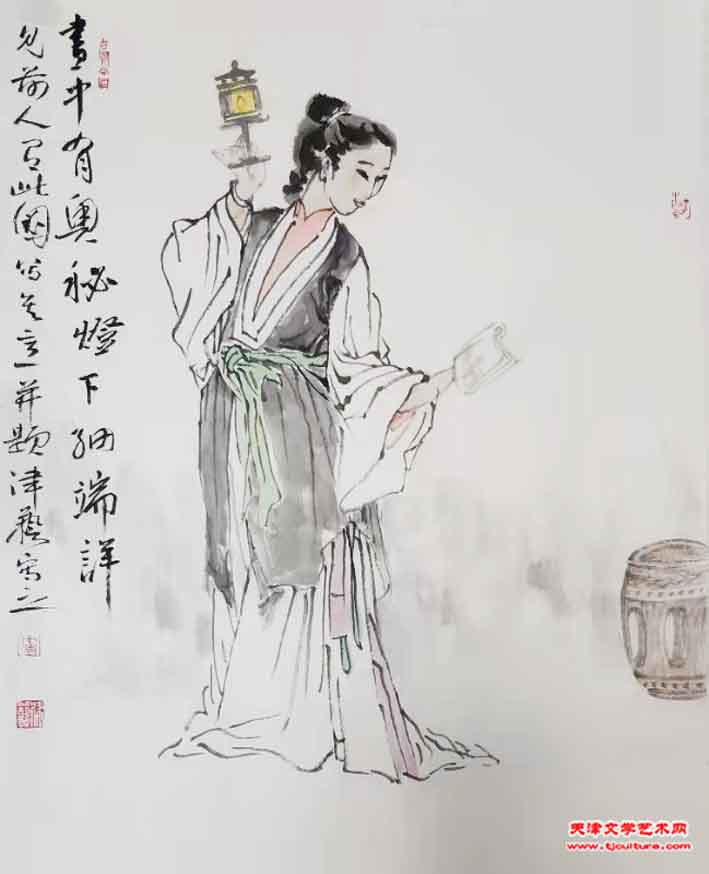 畫中有奥秘燈下細端詳
见前人有此圖仿其意并題津藝寫之
天津文学艺术网
www.tjculture.com